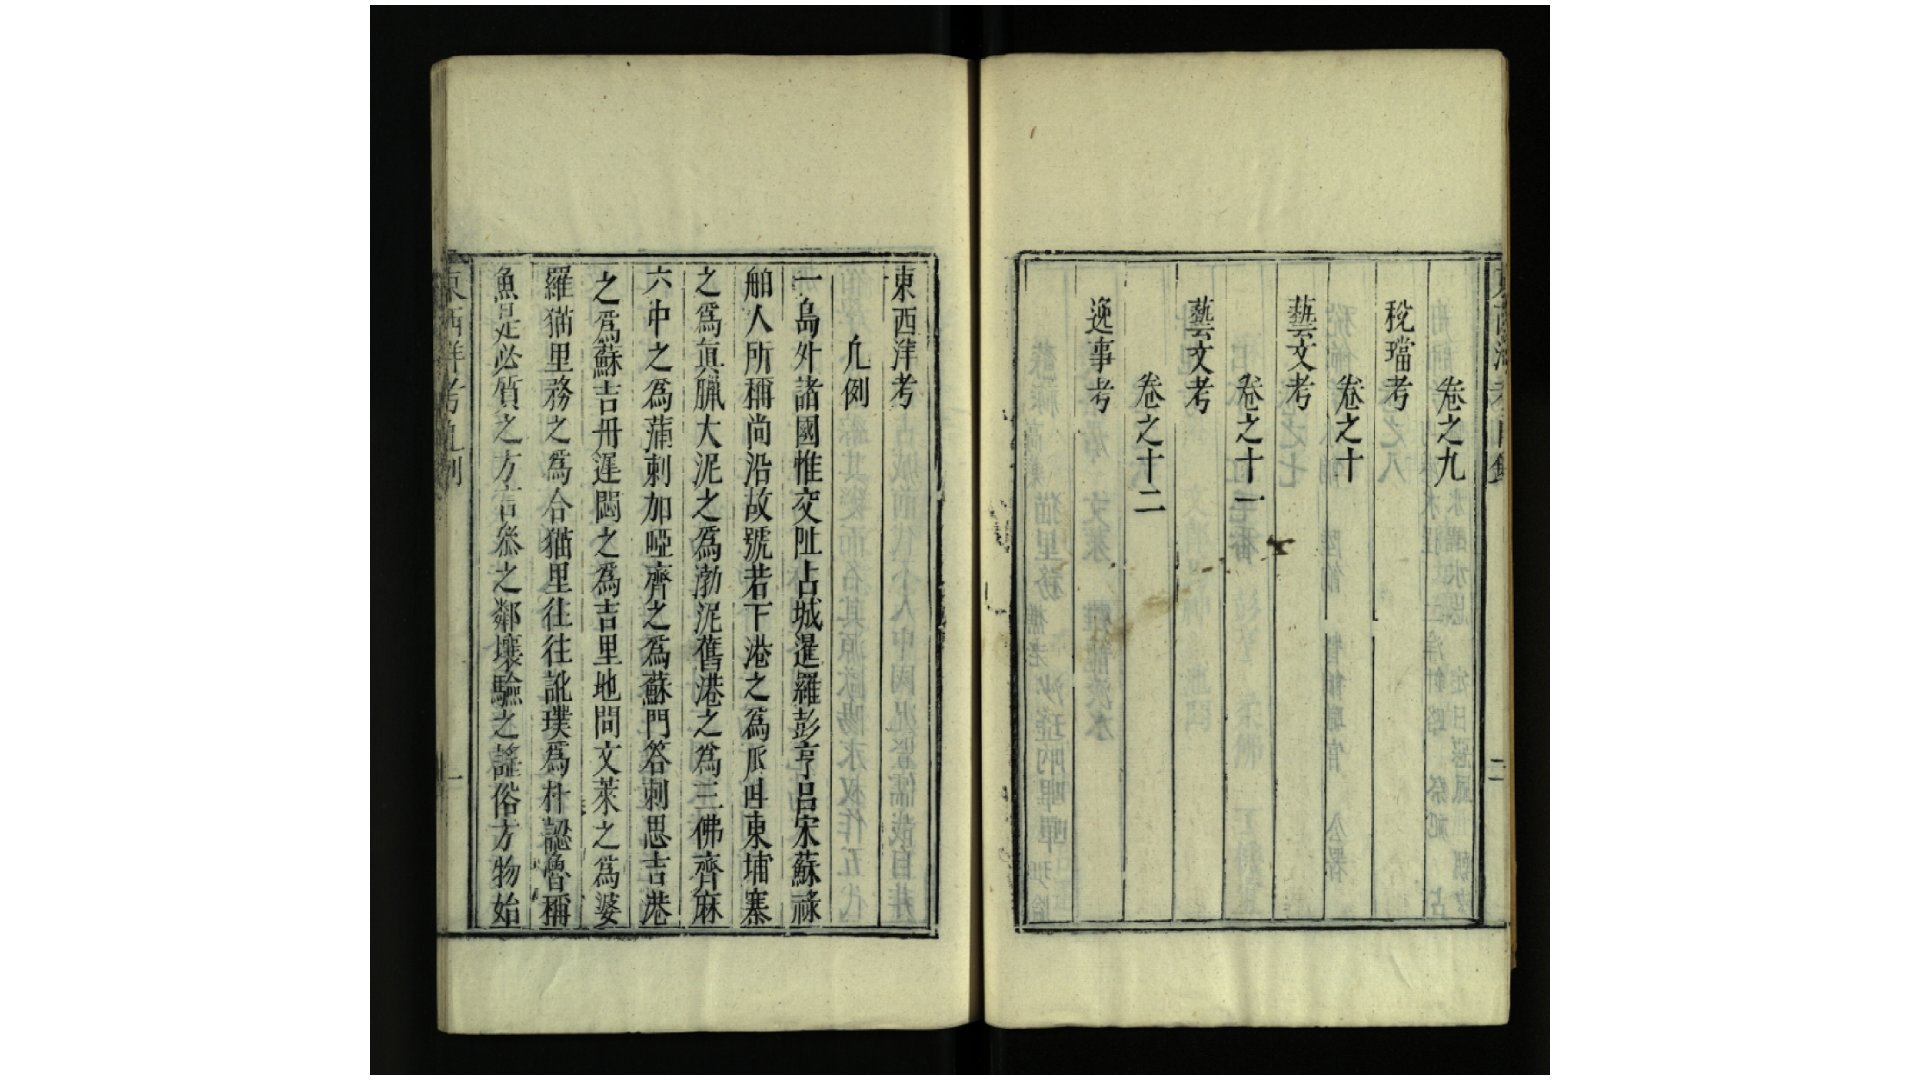 卷之九
稅璫考
卷之十
藝文考
卷之十一
藝文考
卷之十二
逸事考
二
東西洋考
凡例
一島外諸國惟交阯占城暹羅彭亨呂宋蘇祿
舶人所稱尚沿故號若下港之為爪哇柬埔寨
之為真臘大泥之為渤泥舊港之為三佛齊麻
六甲之為蒲剌加啞齊之為蘇門答剌思吉港
之為蘇吉丹遲悶之為吉里地問文萊之為婆
羅猫里務之為合猫里往往訛璞為朴認魯稱
魚是必質之方言叅之鄰壤驗之謠俗方物始
東西洋考凡例
一